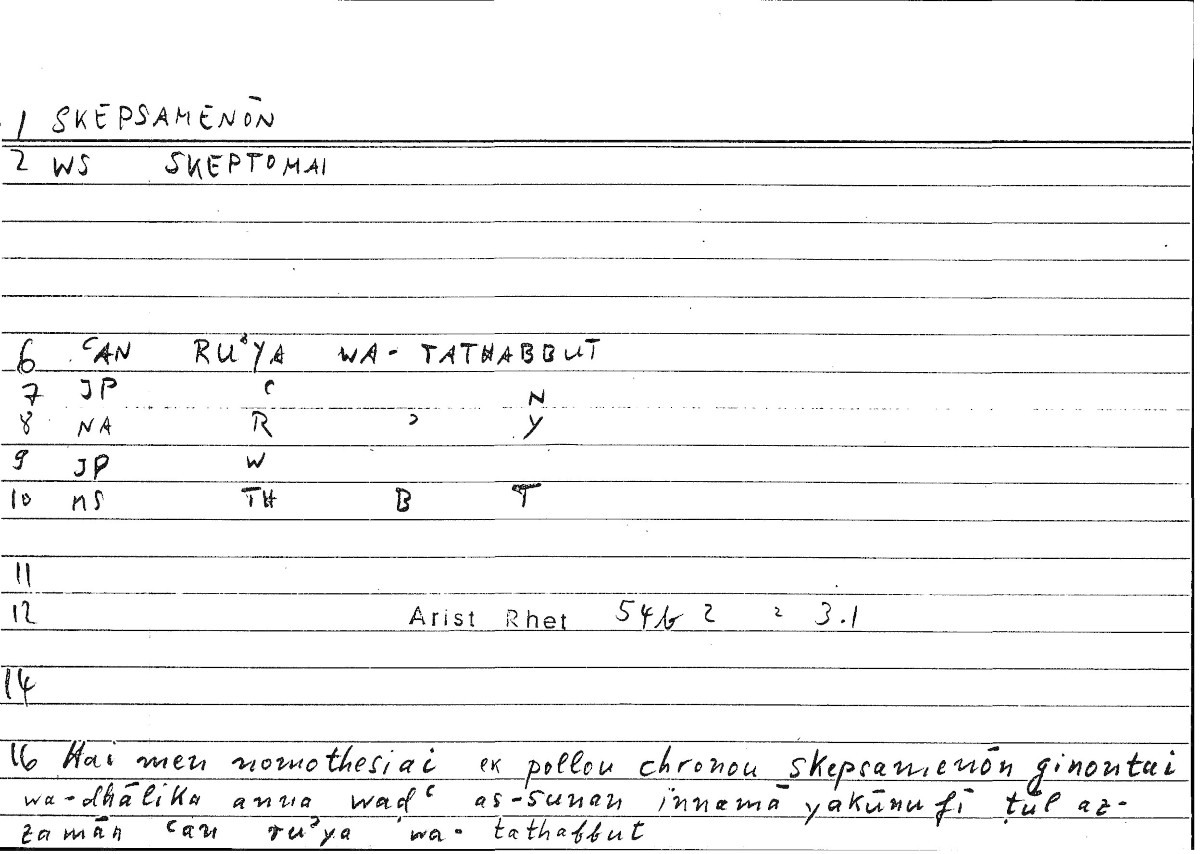 1 SKEPSAMENŌN
2 WS SKEPTOMAI
6 ʿAN RUʾYA WA- TATHABBUT
7 JP ʿ N
8 NA R ʾ Y
9 JP W
10 MS TH B T
11
12 Arist Rhet 54b 2 = 3.1
14
16 Hai men nomothesiai ek pollou chronou skepsamenōn ginontai
wa-dhālika anna waḍʿ as-sunan innamā yakūnu fī ṭūl az-
zamān ʿan ruʾya wa- tathabbut